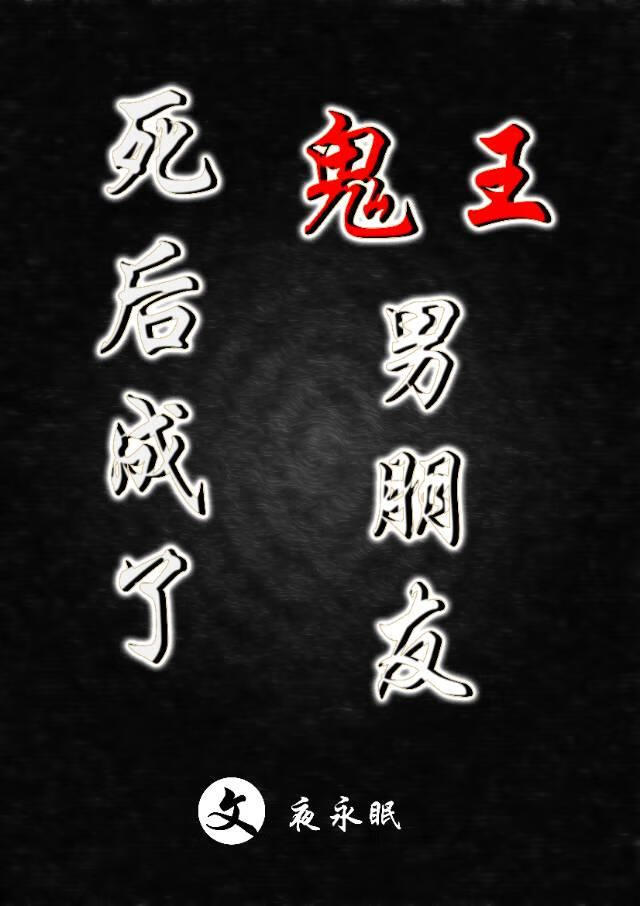 死后成了
鬼王
男朋友
文 夜永眠